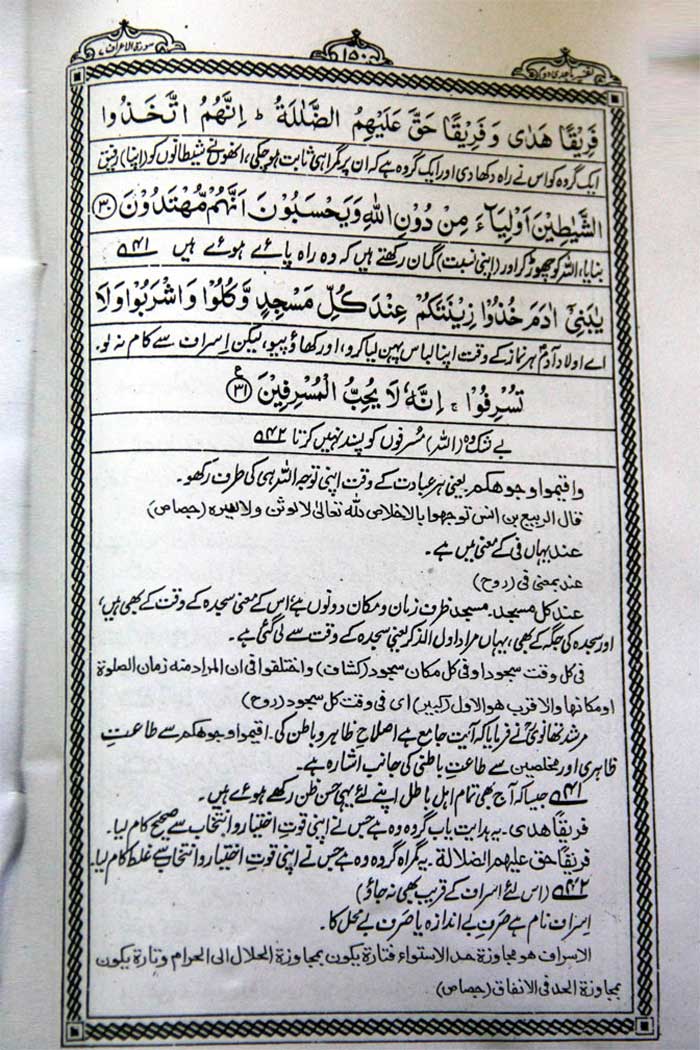 تفسیر ماجدی دوم
۱۵۰
سورة الاعراف ۷
فَرِيْقًا هَدٰى وَفَرِيْقًا حَقَّ عَلَيْهِمُ الضَّلٰلَةُ ؕ اِنَّهُمُ اتَّخَذُوا
ایک گروہ کو اس نے راہ دکھا دی اور ایک گروہ ہے کہ ان پر گمراہی ثابت ہو چکی، انھوں نے شیطانوں کو (اپنا) رفیق
الشَّيٰطِيْنَ اَوْلِيَآءَ مِنْ دُوْنِ اللّٰهِ وَيَحْسَبُوْنَ اَنَّهُمْ مُّهْتَدُوْنَ ﴿۳۰﴾
بنایا، اللہ کو چھوڑ کر اور (اپنی نسبت) گمان رکھتے ہیں کہ وہ راہ پائے ہوئے ہیں ۵۴۱
يٰبَنِيْٓ اٰدَمَ خُذُوْا زِيْنَتَكُمْ عِنْدَ كُلِّ مَسْجِدٍ وَّكُلُوْا وَاشْرَبُوْا وَلَا
اے اولاد آدمؑ ہر نماز کے وقت اپنا لباس پہن لیا کرو، اور کھاؤ پیو، لیکن اِسراف سے کام نہ لو۔
تُسْرِفُوْا ۚ اِنَّهٗ لَا يُحِبُّ الْمُسْرِفِيْنَ ﴿۳۱﴾ ع
بے شک وہ (اللہ) مُسرفوں کو پسند نہیں کرتا ۵۴۲
واقیموا وجوھکم۔ یعنی ہر عبادت کے وقت اپنی توجہ اللہ ہی کی طرف رکھو۔
قال الربیع بن انس توجھوا بالاخلاص للہ تعالیٰ لا لوثن ولا لغیرہ (جصاص)
عند یہاں فی کے معنی میں ہے۔
عند بمعنی فی (روح)
عند کل مسجد۔ مسجد ظرف زمان و مکان دونوں ہے اس کے معنی سجدہ کے وقت کے بھی ہیں،
اور سجدہ کی جگہ کے بھی، یہاں مراد اول الذکر یعنی سجدہ کے وقت سے لی گئی ہے۔
فی کل وقت سجود او فی کل مکان سجود (کشاف) واختلفوا فی ان المراد منہ زمان الصلوٰۃ
او مکانھا والاقرب ھو الاول (کبیر) ای فی وقت کل سجود (روح)
مرشد تھانویؒ نے فرمایا کہ آیت جامع ہے اصلاحِ ظاہر و باطن کی۔ اقیموا وجوھکم سے طاعتِ
ظاہری اور مخلصین سے طاعتِ باطنی کی جانب اشارہ ہے۔
۵۴۱ جیسا کہ آج بھی تمام اہل باطل اپنے لئے یہی حسن ظن رکھے ہوئے ہیں۔
فریقًا ھدی۔ یہ ہدایت یاب گروہ وہ ہے جس نے اپنی قوتِ اختیار و انتخاب سے صحیح کام لیا۔
فریقًا حق علیھم الضلالۃ۔ یہ گمراہ گروہ وہ ہے جس نے اپنی قوتِ اختیار و انتخاب سے غلط کام لیا۔
۵۴۲ (اس لئے اسراف کے قریب بھی نہ جاؤ)
اِسراف نام ہے صَرفِ بے اندازہ یا صَرفِ بے محل کا۔
الاسراف ھو مجاوزۃ حد الاستواء فتارۃ یکون بمجاوزۃ الحلال الی الحرام وتارۃ یکون
بمجاوزۃ الحد فی الانفاق (جصاص)